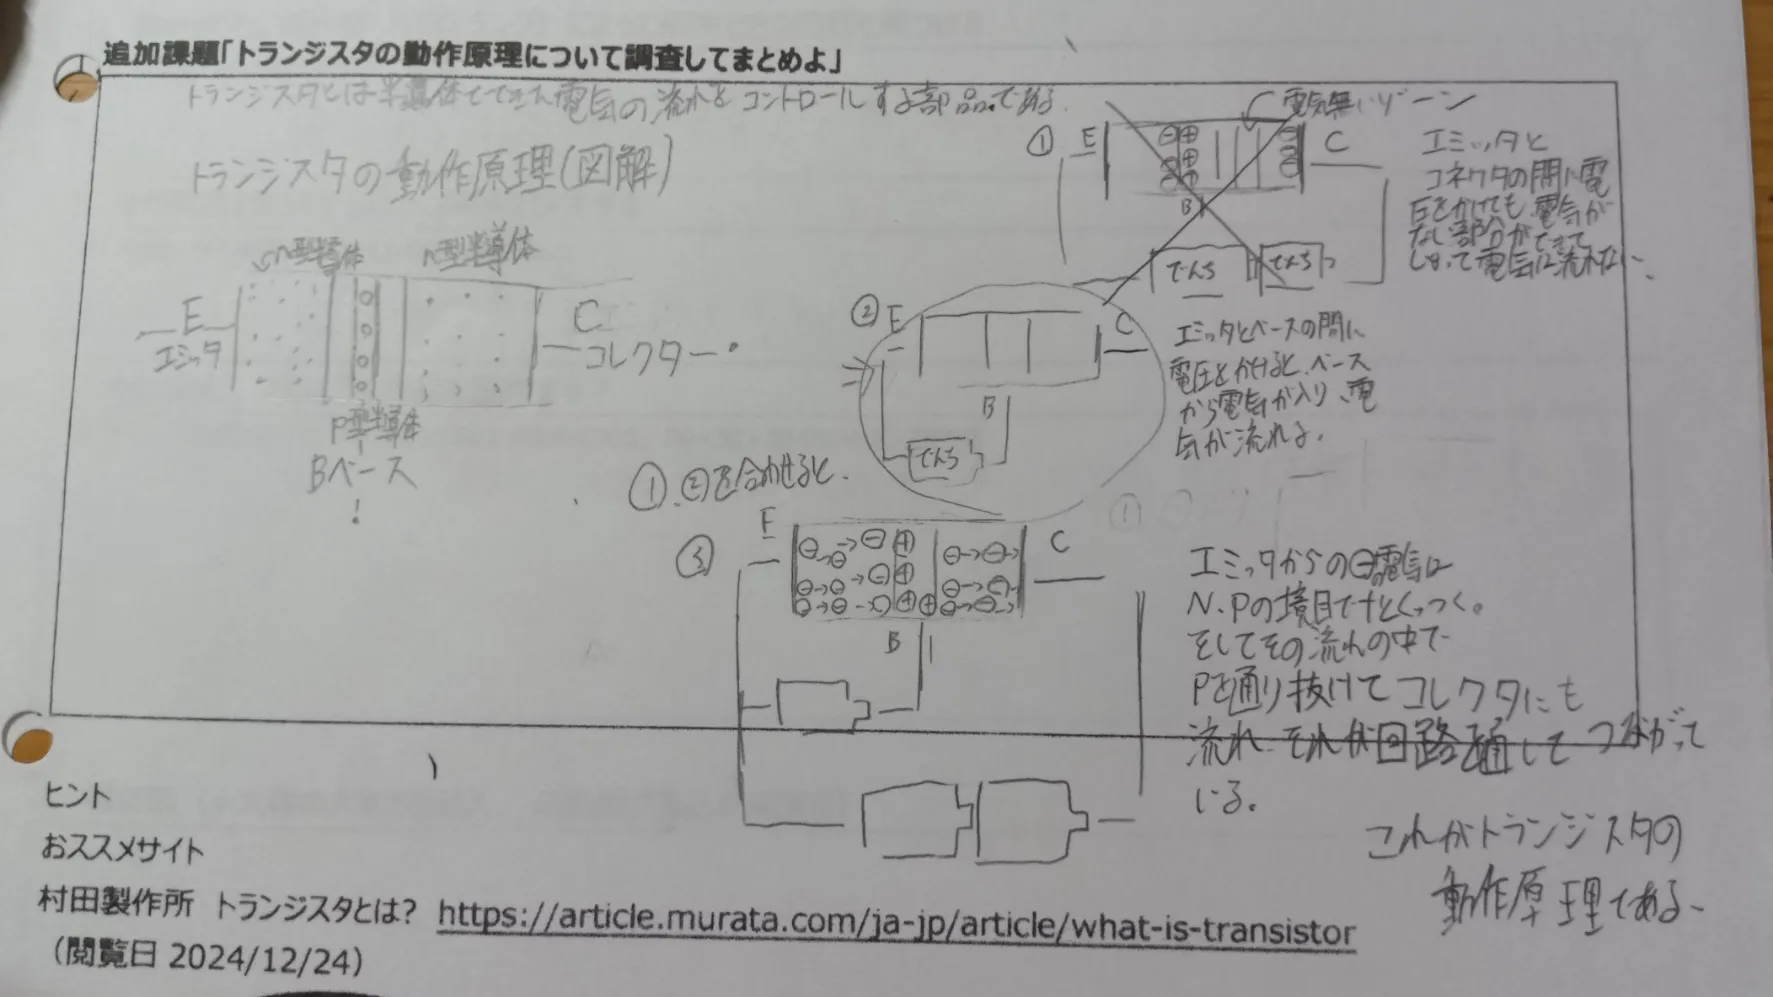 追加課題「トランジスタの動作原理について調査してまとめよ」
トランジスタとは半導体でできた電気の流れをコントロールする部品である.
トランジスタの動作原理(図解)
n型半導体
n型半導体
E
エミッタ
C
コレクター
P型半導体
Bベース
①
E
電気無いゾーン
C
B
でんち
でんち
エミッタと
コネクタの間に電
圧をかけても電気が
ない部分ができて
しまって電気は流れない、
②
E
C
B
でんち
エミッタとベースの間に
電圧をかけると、ベース
から電気が入り、電
気が流れる.
①.②を合わせると.
③
E
C
B
エミッタからの⊖の電気は
N.Pの境目で+とくっつく。
そしてその流れの中で
Pを通り抜けてコレクタにも
流れ、それが回路通してつながって
いる。
これがトランジスタの
動作原理である.
ヒント
おススメサイト
村田製作所 トランジスタとは? https://article.murata.com/ja-jp/article/what-is-transistor
(閲覧日 2024/12/24)